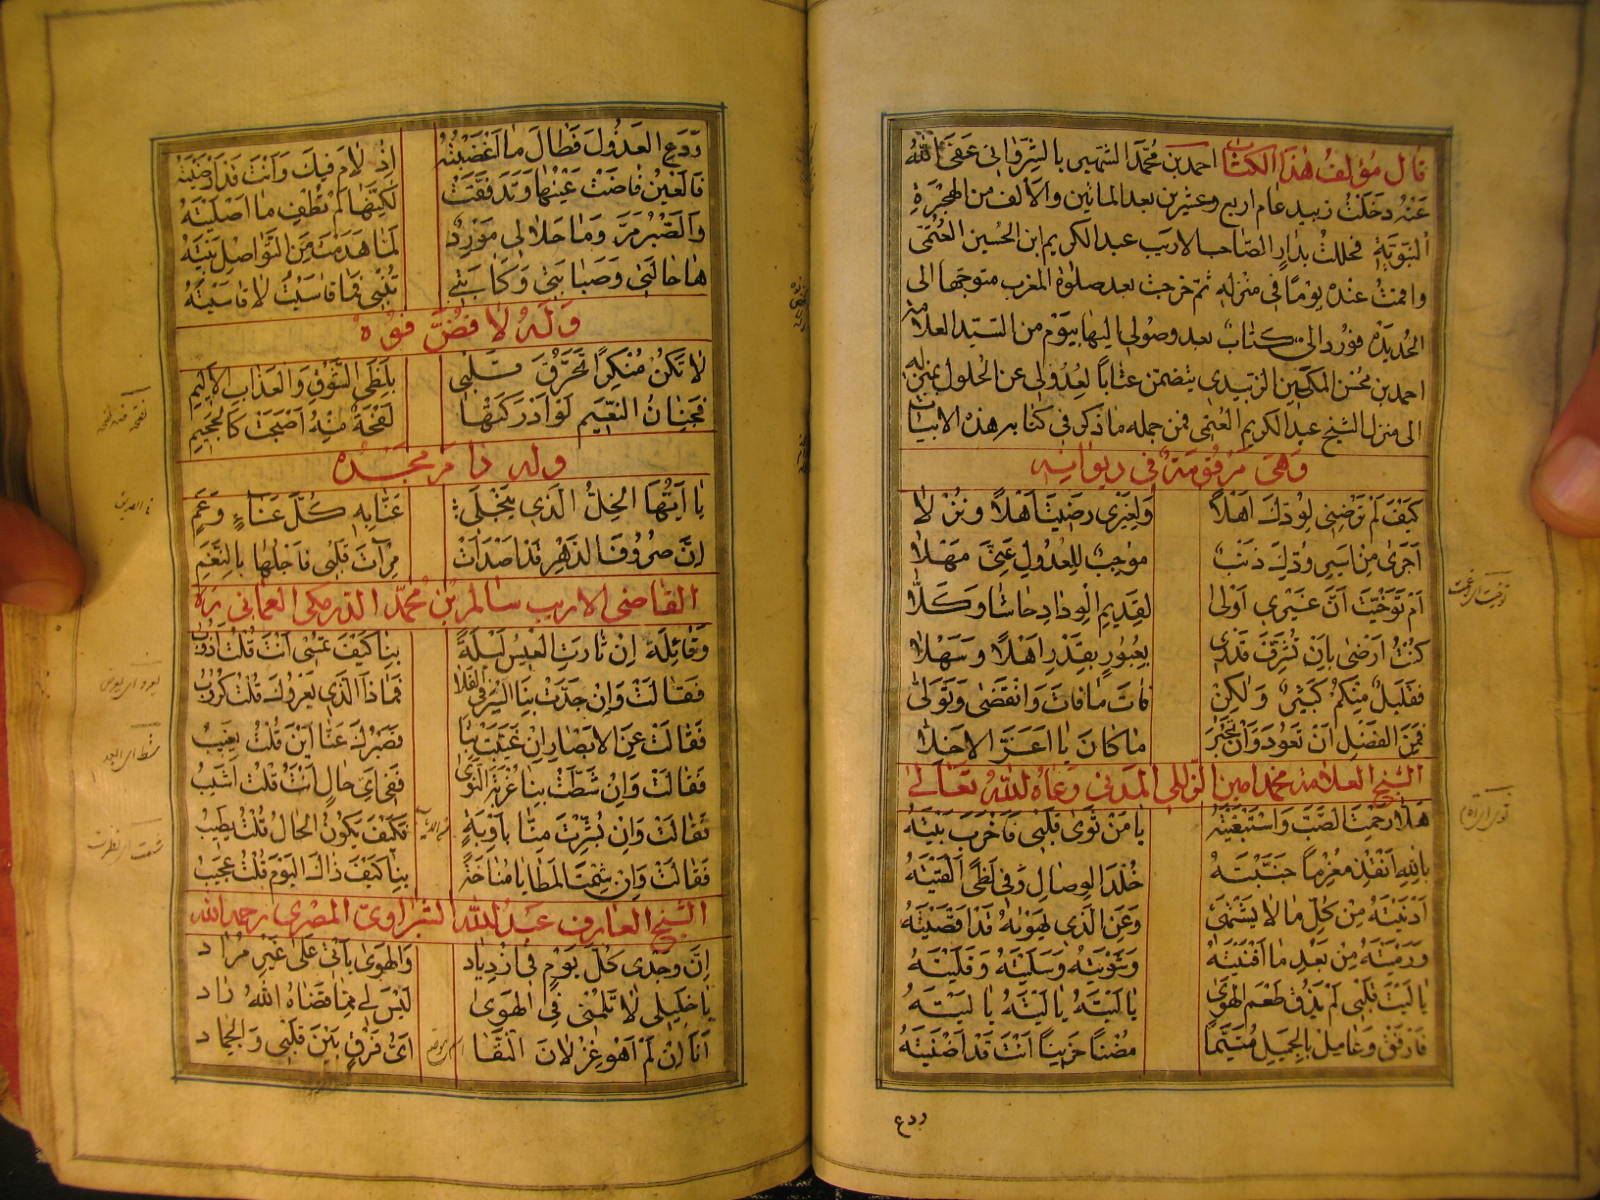 قال مؤلف هذا الكتاب احمد بن محمد الشهير بالشرواني عفى الله
عنه دخلت زبيد عام اربع وعشرين بعد المائتين والالف من الهجرة
النبوية فحللت بدار الصاحب الاريب عبد الكريم ابن الحسين العتمى
واقمت عنده يومًا فى منزله ثم خرجت بعد صلوة المغرب متوجها الى
الحديدة فورد الىّ كتاب بعد وصولى اليها بيوم من السيد العلامة
احمد بن محسن المكين الزبيدى يتضمن عتابًا لعدولى عن الحلول بمنزله
الى منزل الشيخ عبد الكريم العتمى فمن جمله ما ذكر فى كتابه هذه الابيات
وهى مرقومة فى ديوانه
كَيْفَ لَمْ تَرْضَنِى لِوُدِّكَ اَهْلاً وَلِغَيْرِى رَضِيتَ اَهْلاً وَنُزْلاَ
اَجَرَى مِنْ اَسِيرِ وُدِّكَ ذَنْبٌ مُوجِبٌ لِلْعُدُولِ عَنِّى مَهْلاَ
اَمْ تَوَخَّيْتَ اَنَّ غَيْرِى اَوْلَى لِقَدِيمِ الْوِدَادِ حَاشَا وَكَلاَّ
كُنْتُ اَرْضَى بِاَنْ تُشَرِّفَ قَدْرِى بِعُبُورٍ بِقَدْرِ اَهْلاً وَسَهْلاَ
فَقَلِيلٌ مِنْكُمْ كَثِيرٌ وَلَكِنْ فَاتَ مَا فَاتَ وَانْقَضَى وَتَوَلَّى
فَمِنَ الْفَضْلِ اَنْ تَعُودَ وَاَنْ تَجْبُرَ مَا كَانَ يَا اَعَزَّ الاَخِلاَّ
الشيخ العلامة محمد امين الزللى المدنى رعاه الله تعالى
هَلاَّ رَحِمْتَ الصَّبَّ وَاسْتَبْقَيْتَهُ يَا مَنْ ثَوَى قَلْبِى فَاَخْرَبَ بَيْتَهُ
بِاللهِ اَنْقِذْ مُغْرِمًا جَنَّبْتَهُ خُلْدَ الْوِصَالِ وَفِى لَظًى اَلْقَيْتَهُ
اَدْنَيْتَهُ مِنْ كُلِّ مَا لاَ يَشْتَهِى وَعَنِ الَّذِى يَهْوَاهُ قَدْ اَقْصَيْتَهُ
وَرَمَيْتَهُ مِنْ بَعْدِ مَا اَفْنَيْتَهُ وَشَوَيْتَهُ وَسَلَيْتَهُ وَقَلَيْتَهُ
يَا لَيْتَ قَلْبِى لَمْ يَذُقْ طَعْمَ الْهَوَى يَا لَيْتَهُ يَا لَيْتَهُ يَا لَيْتَهُ
فَارْفُقْ وَعَامِلْ بِالْجَمِيلِ مُتَيَّمًا مُضْنًا حَزِينًا اَنْتَ قَدْ اَضْنَيْتَهُ
ردع
رَدَعَ الْعَذُولَ فَطَالَ مَا اَغْضَبْتُهُ اِذْ لاَمَ فِيكَ وَاَنْتَ قَدْ اَرْضَيْتَهُ
فَالْعَيْنُ فَاضَتْ عَيْنُهَا وَتَدَفَّقَتْ لَكِنَّهَا لَمْ تُطْفِ مَا اَصْلَيْتَهُ
وَالصَّبْرُ مَرَّ وَمَا حَلاَ لِى مَوْرِدٌ لَمَّا هَدَمْتَ مِنَ التَّوَاصُلِ بَيْتَهُ
هَا حَالَتِى وَصَبَابَتِى وَكَآبَتِى تُنْبِى فَمَا قَاسَيْتُ لاَ قَاسَيْتَهُ
وَلَهُ لاَ فُضَّ فُوهُ
لاَ تَكُنْ مُنْكِرًا تَحَرُّقَ قَلْبِى بِلَظَى الشَّوْقِ وَالْعَذَابِ الاَلِيمِ
فَجِنَانُ النَّعِيمِ لَوْ اَدْرَكَتْهَا لَفْحَةٌ مِنْهُ اَصْبَحَتْ كَالْجَحِيمِ
وله دام مجده
يَا اَيُّهَا الْخِلُّ الَّذِى يَنْجَلِى عَنَّا بِهِ كُلُّ عَنَاءٍ وَغَمٍّ
اِنَّ صُرُوفَ الدَّهْرِ قَدْ اَصْدَأَتْ مِرْآتَ قَلْبِى فَاجْلُهَا بِالنِّعَمِ
القاضى الاريب سالم بن محمد الدرمكى العمانى ره
وَقَائِلَةً اِنْ ثَارَتِ الْعِيسُ لَيْلَةً بِنَا كَيْفَ تُمْسِى اَنْتَ قُلْتُ اَذُوبُ
فَقَالَتْ وَاِنْ جَدَّتْ بِنَا السَّيْرُ فِى الْفَلاَ فَمَاذَا الَّذِى يَعْرُوكَ قُلْتُ كُرُوبُ
فَقَالَتْ عَنِ الاَبْصَارِ اِنْ غَيَّبَتْ بِنَا فَصَبْرُكَ عَنَّا اَيْنَ قُلْتُ يَغِيبُ
فَقَالَتْ وَاِنْ شَطَّتْ بِنَا غُرْبَةُ النَّوَى فَفِى اَىِّ حَالٍ اَنْتَ قُلْتُ اَشِيبُ
فَقَالَتْ وَاِنْ بُشِّرْتَ مِنَّا بِاَوْبَةٍ فَكَيْفَ يَكُونُ الْحَالُ قُلْتُ يَطِيبُ
فَقَالَتْ وَاِنْ شِمْتَ الْمَطَايَا مُنَاخَةً بِنَا كَيْفَ ذَاكَ الْيَوْمُ قُلْتُ عَجِيبُ
الشيخ العارف عبد الله الشبراوى المصرى رحمه الله
اِنَّ وَجْدِى كُلَّ يَوْمٍ فِى ازْدِيَادِ وَالْهَوَى يَاْتِى عَلَى غَيْرِ مُرَادِ
يَا خَلِيلِى لاَ تَلُمْنِى فِى الْهَوَى لَيْسَ لِى مِمَّا قَضَاهُ اللهُ رَاد
اَنَا اِنْ لَمْ اَهْوَ غِزْلاَنَ النَّقَا اَىُّ فَرْقٍ بَيْنَ قَلْبِى وَالْجَمَاد